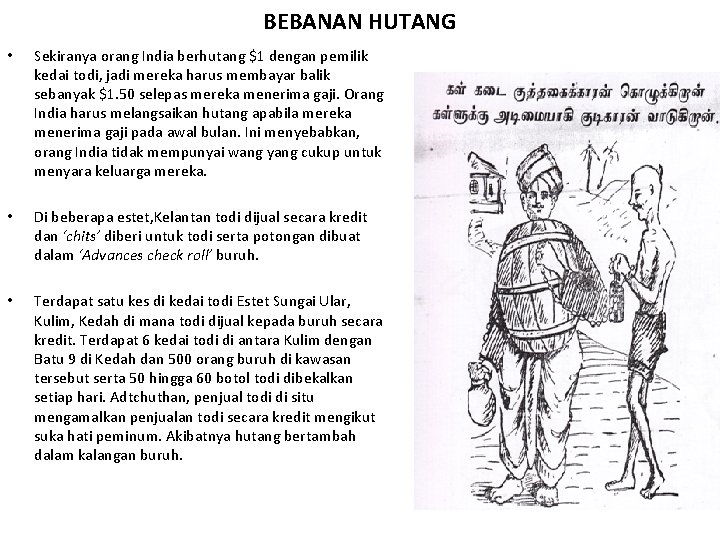 BEBANAN HUTANG
• Sekiranya orang India berhutang $1 dengan pemilik
kedai todi, jadi mereka harus membayar balik
sebanyak $1.50 selepas mereka menerima gaji. Orang
India harus melangsaikan hutang apabila mereka
menerima gaji pada awal bulan. Ini menyebabkan,
orang India tidak mempunyai wang yang cukup untuk
menyara keluarga mereka.
• Di beberapa estet, Kelantan todi dijual secara kredit
dan ‘chits’ diberi untuk todi serta potongan dibuat
dalam ‘Advances check roll’ buruh.
• Terdapat satu kes di kedai todi Estet Sungai Ular,
Kulim, Kedah di mana todi dijual kepada buruh secara
kredit. Terdapat 6 kedai todi di antara Kulim dengan
Batu 9 di Kedah dan 500 orang buruh di kawasan
tersebut serta 50 hingga 60 botol todi dibekalkan
setiap hari. Adtchuthan, penjual todi di situ
mengamalkan penjualan todi secara kredit mengikut
suka hati peminum. Akibatnya hutang bertambah
dalam kalangan buruh.
கள் கடை குத்தகைக்காரன் கொழுக்கிறான்
கள்ளுக்கு அடிமையாகி குடிகாரன் வாடுகிறான்.